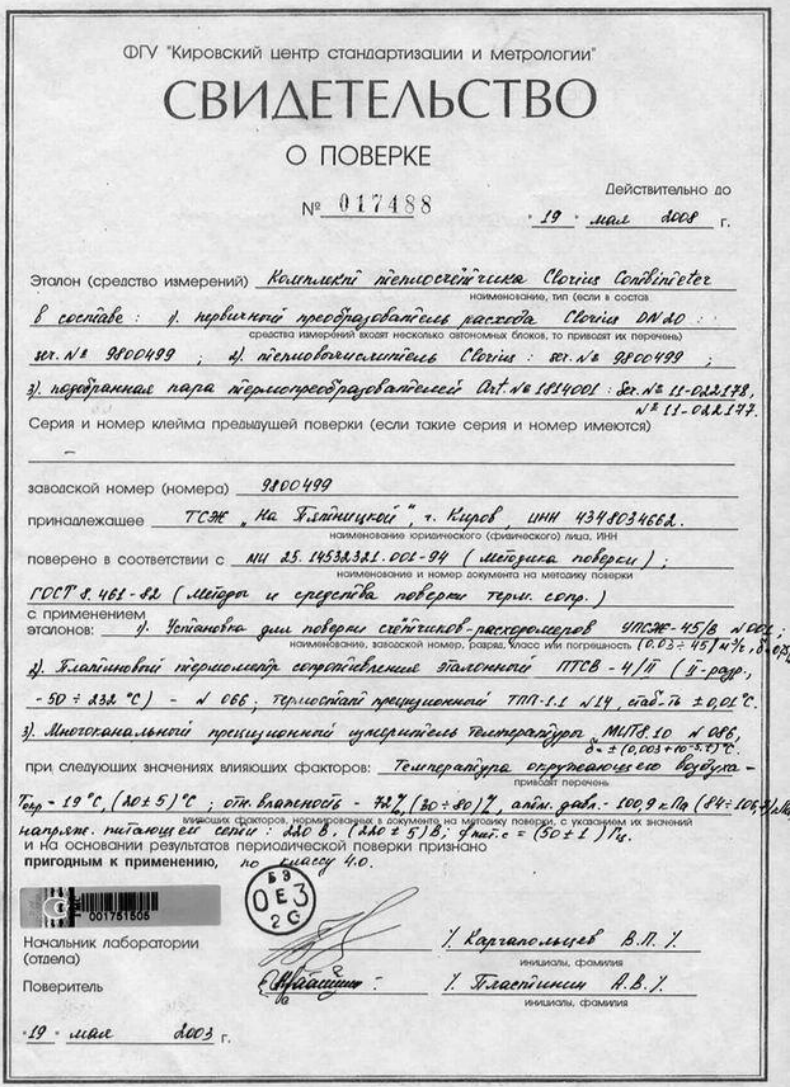 ФГУ "Кировский центр стандартизации и метрологии"
СВИДЕТЕЛЬСТВО
О ПОВЕРКЕ
№ 017488
Действительно до
" 19 " мая 2008 г.
Эталон (средство измерений) Комплект теплосчётчика Clorius Combimeter
наименование, тип (если в состав
в составе : 1). первичный преобразователь расхода Clorius DN20 :
средства измерений входят несколько автономных блоков, то приводят их перечень)
ser. № 9800499 ; 2). тепловычислитель Clorius : ser. № 9800499 ;
3). подобранная пара термопреобразователей Art. № 1814001 : Ser. № 11-022178,
№ 11-022177.
Серия и номер клейма предыдущей поверки (если такие серия и номер имеются)
–
заводской номер (номера) 9800499
принадлежащее ТСЖ „На Пятницкой", г. Киров, ИНН 4348034662.
наименование юридического (физического) лица, ИНН
поверено в соответствии с МИ 25.14532321.001-94 ( Методика поверки ) ;
наименование и номер документа на методику поверки
ГОСТ 8.461-82 ( Методы и средства поверки терм. сопр. )
с применением
эталонов: 1). Установка для поверки счётчиков-расходомеров УПСЖ-45/В №001 ;
наименование, заводской номер, разряд, класс или погрешность (0.03 ÷ 45) м³/г,
2). Платиновый термометр сопротивления эталонный ПТСВ - 4/II ( II-разр.,
-50 ÷ 232 °С ) - № 066 ; термостат прецизионный ТПП-1.1 №14, стаб-ть ± 0,01°С.
3). Многоканальный прецизионный измеритель температуры „МИТ8.10 № 086,
δ = ± (0,003 + 10⁻⁵·t) °С.
при следующих значениях влияющих факторов: Температура окружающего воздуха -
приводят перечень
Токр - 19 °С, (20 ± 5) °С ; отн. влажность - 72%, (30 ÷ 80)%, атм. давл. - 100,9 кПа (84 ÷ 106,7) кПа
влияющих факторов, нормированных в документе на методику поверки, с указанием их значений
напряж. питающей сети : 220 В, (220 ± 5) В ; fпит.с = (50 ± 1) Гц.
и на основании результатов периодической поверки признано
пригодным к применению, по классу 4.0.
БЭ
ОЕЗ
2С
001751505
Начальник лаборатории
(отдела)
/. Каргапольцев В.П. /.
инициалы, фамилия
Поверитель
/. Пластинин А.В. /.
инициалы, фамилия
" 19 " мая 2003 г.